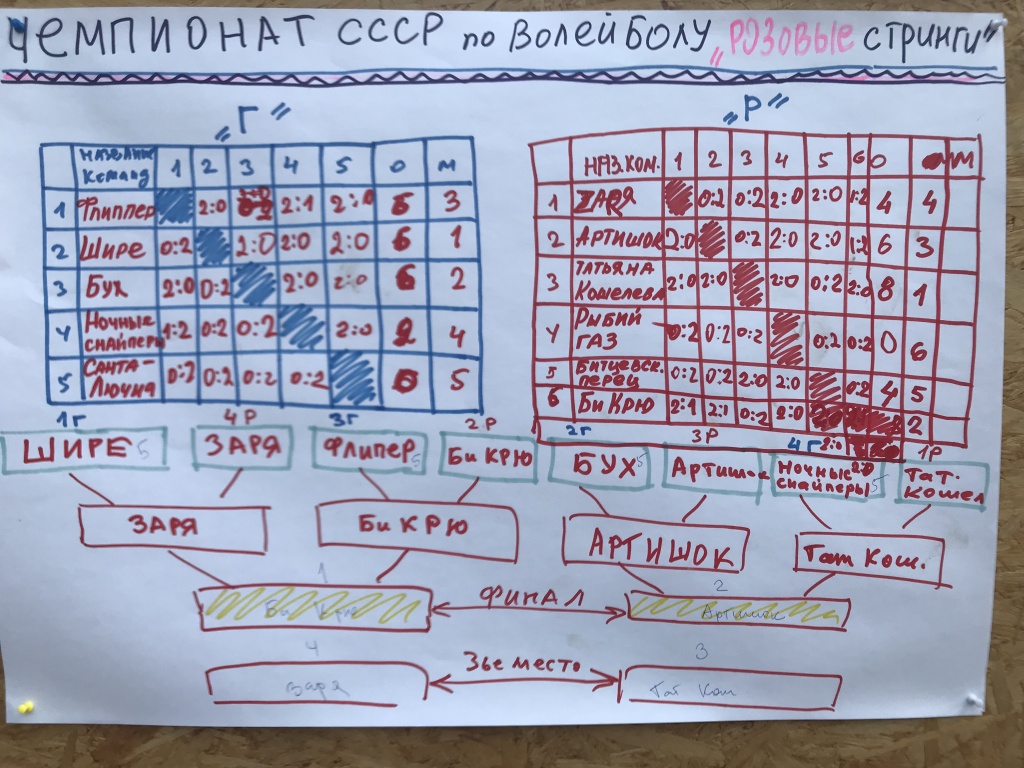 ЧЕМПИОНАТ СССР по ВОЛЕЙБОЛУ „РОЗОВЫЕ СТРИНГИ"
„Г" „Р"
НАЗВАНИЕ КОМАНД 1 2 3 4 5 О М
1 Флиппер 2:0 2:1 2:0 6 3
2 Шире 0:2 2:0 2:0 2:0 6 1
3 Бух 2:0 0:2 2:0 2:0 6 2
4 Ночные снайперы 1:2 0:2 0:2 2:0 2 4
5 Санта-Лючия 0:2 0:2 0:2 0:2 0 5
НАЗ.КОМ. 1 2 3 4 5 6 О М
1 ЗАРЯ 0:2 0:2 2:0 2:0 1:2 4 4
2 АРТИШОК 2:0 0:2 2:0 2:0 1:2 6 3
3 ТАТЬЯНА Кошелева 2:0 2:0 2:0 0:2 2:0 8 1
4 РЫБИЙ ГАЗ 0:2 0:2 0:2 0:2 0:2 0 6
5 БИТЦЕВСК. перец 0:2 0:2 2:0 2:0 0:2 4 5
6 Би Крю 2:1 2:1 0:2 2:0 2
2:0
1Г 4Р 3Г 2Р 2Г 3Р 4Г 1Р
ШИРЕ 5 ЗАРЯ Флипер 5 Би КРЮ БУХ 5 Артишок Ночные снайперы 5 Тат. Кошел
ЗАРЯ Би КРЮ АРТИШОК Тат Кош.
1 2
Би Крю ФИНАЛ Артишок
4 3
Заря 3ье место Тат Кош